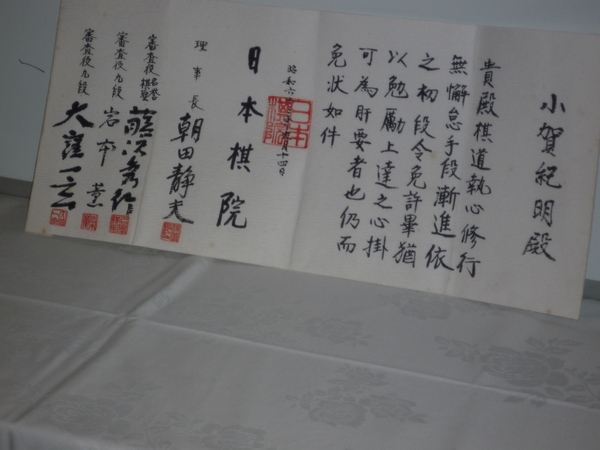 小賀紀明殿
貴殿棋道執心修行
無懈怠手段漸進依
之初段令免許畢猶
以勉勵上達之心掛
可為肝要者也仍而
免状如件
昭和六 月十四日
日本棋院
理事長 朝田静夫
審査役名誉棋聖 藤沢秀行
審査役九段 岩本薫
審査役九段 大窪一玄